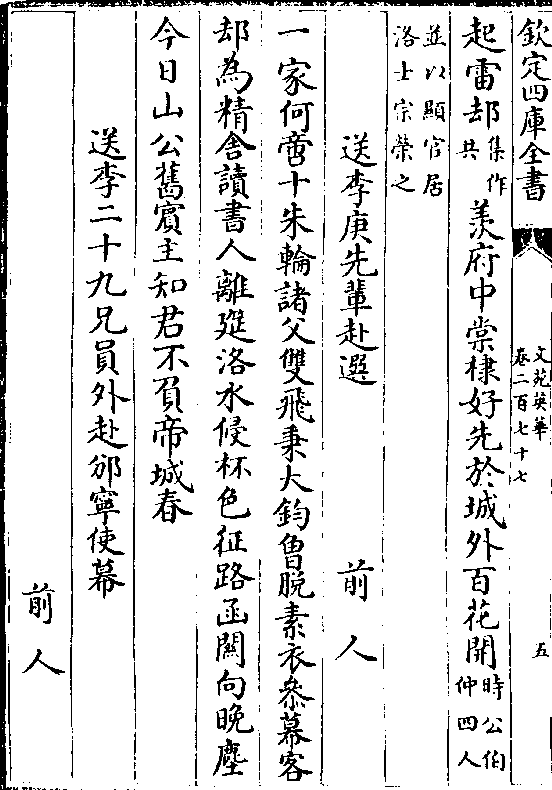 欽定四庫全書
文苑英華
卷二百七十七
五
起雷却集作共羨府中棠棣好先於城外百花開時公伯仲四人
並以顯官居洛士宗榮之
送李庚先輩赴選
前人
一家何啻十朱輪諸父雙飛秉大鈞曾脱素衣叅幕客
却為精舍讀書人離筵洛水候杯色征路函關向晚塵
今日山公舊賓主知君不負帝城春
送李二十九兄員外赴邠寧使幕
前人